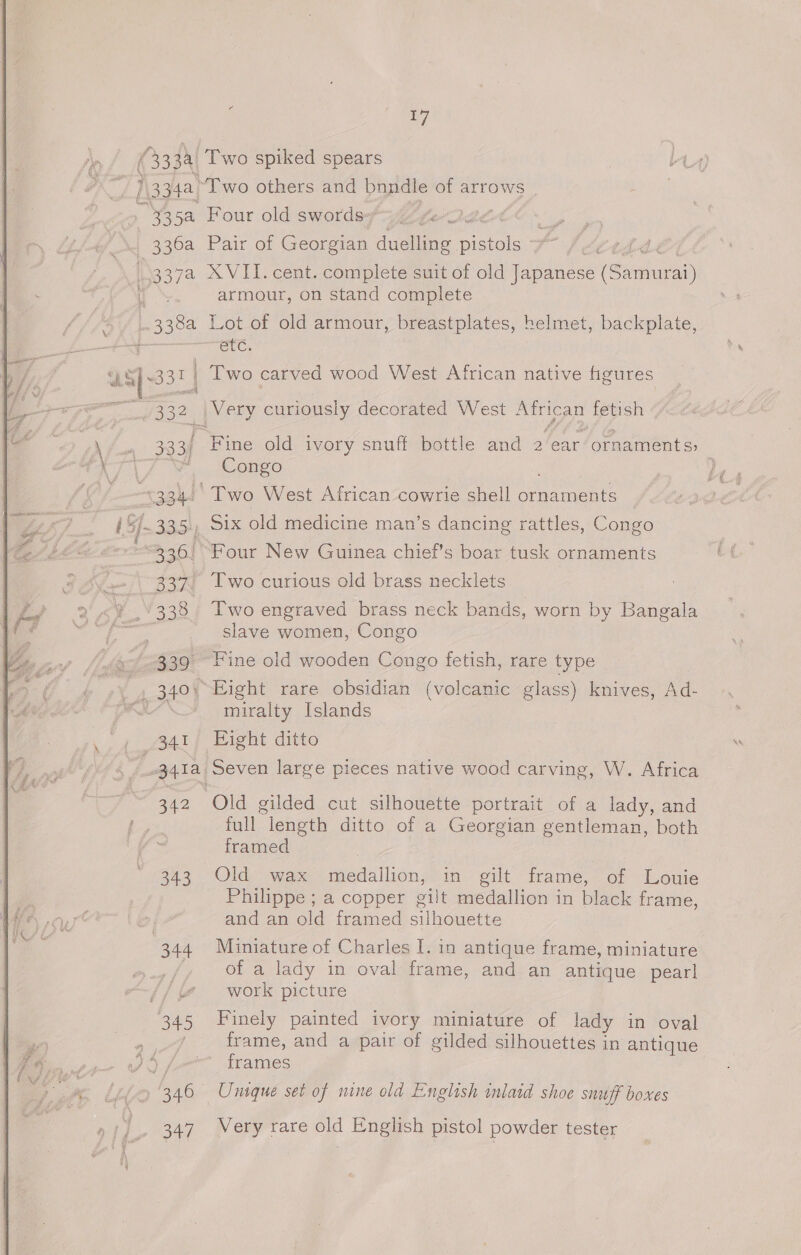 17
333a Two spiked spears
334a Two others and bnndle of arrows
335a Four old swords
336a Pair of Georgian duelling pistols
337a XVII. cent. complete suit of old Japanese (Samurai)
armour, on stand complete
338a Lot of old armour, breastplates, helmet, backplate,
etc.
331 Two carved wood West African native figures
332 Very curiously decorated West African fetish
333 Fine old ivory snuff bottle and 2 ear ornaments,
Congo
334 Two West African cowrie shell ornaments
15/- 335 Six old medicine man's dancing rattles, Congo
336 Four New Guinea chief's boar tusk ornaments
337 Two curious old brass necklets
338 Two engraved brass neck bands, worn by Bangala
slave women, Congo
339 Fine old wooden Congo fetish, rare type
340 Eight rare obsidian (volcanic glass) knives, Ad-
miralty Islands
341 Eight ditto
341a Seven large pieces native wood carving, W. Africa
342 Old gilded cut silhouette portrait of a lady, and
full length ditto of a Georgian gentleman, both
framed
343 Old wax medallion, in gilt frame, of Louie
Philippe ; a copper gilt medallion in black frame,
and an old framed silhouette
344 Miniature of Charles I. in antique frame, miniature
of a lady in oval frame, and an antique pearl
work picture
345 Finely painted ivory miniature of lady in oval
frame, and a pair of gilded silhouettes in antique
frames
346 Unique set of nine old English inlaid shoe snuff boxes
347 Very rare old English pistol powder tester